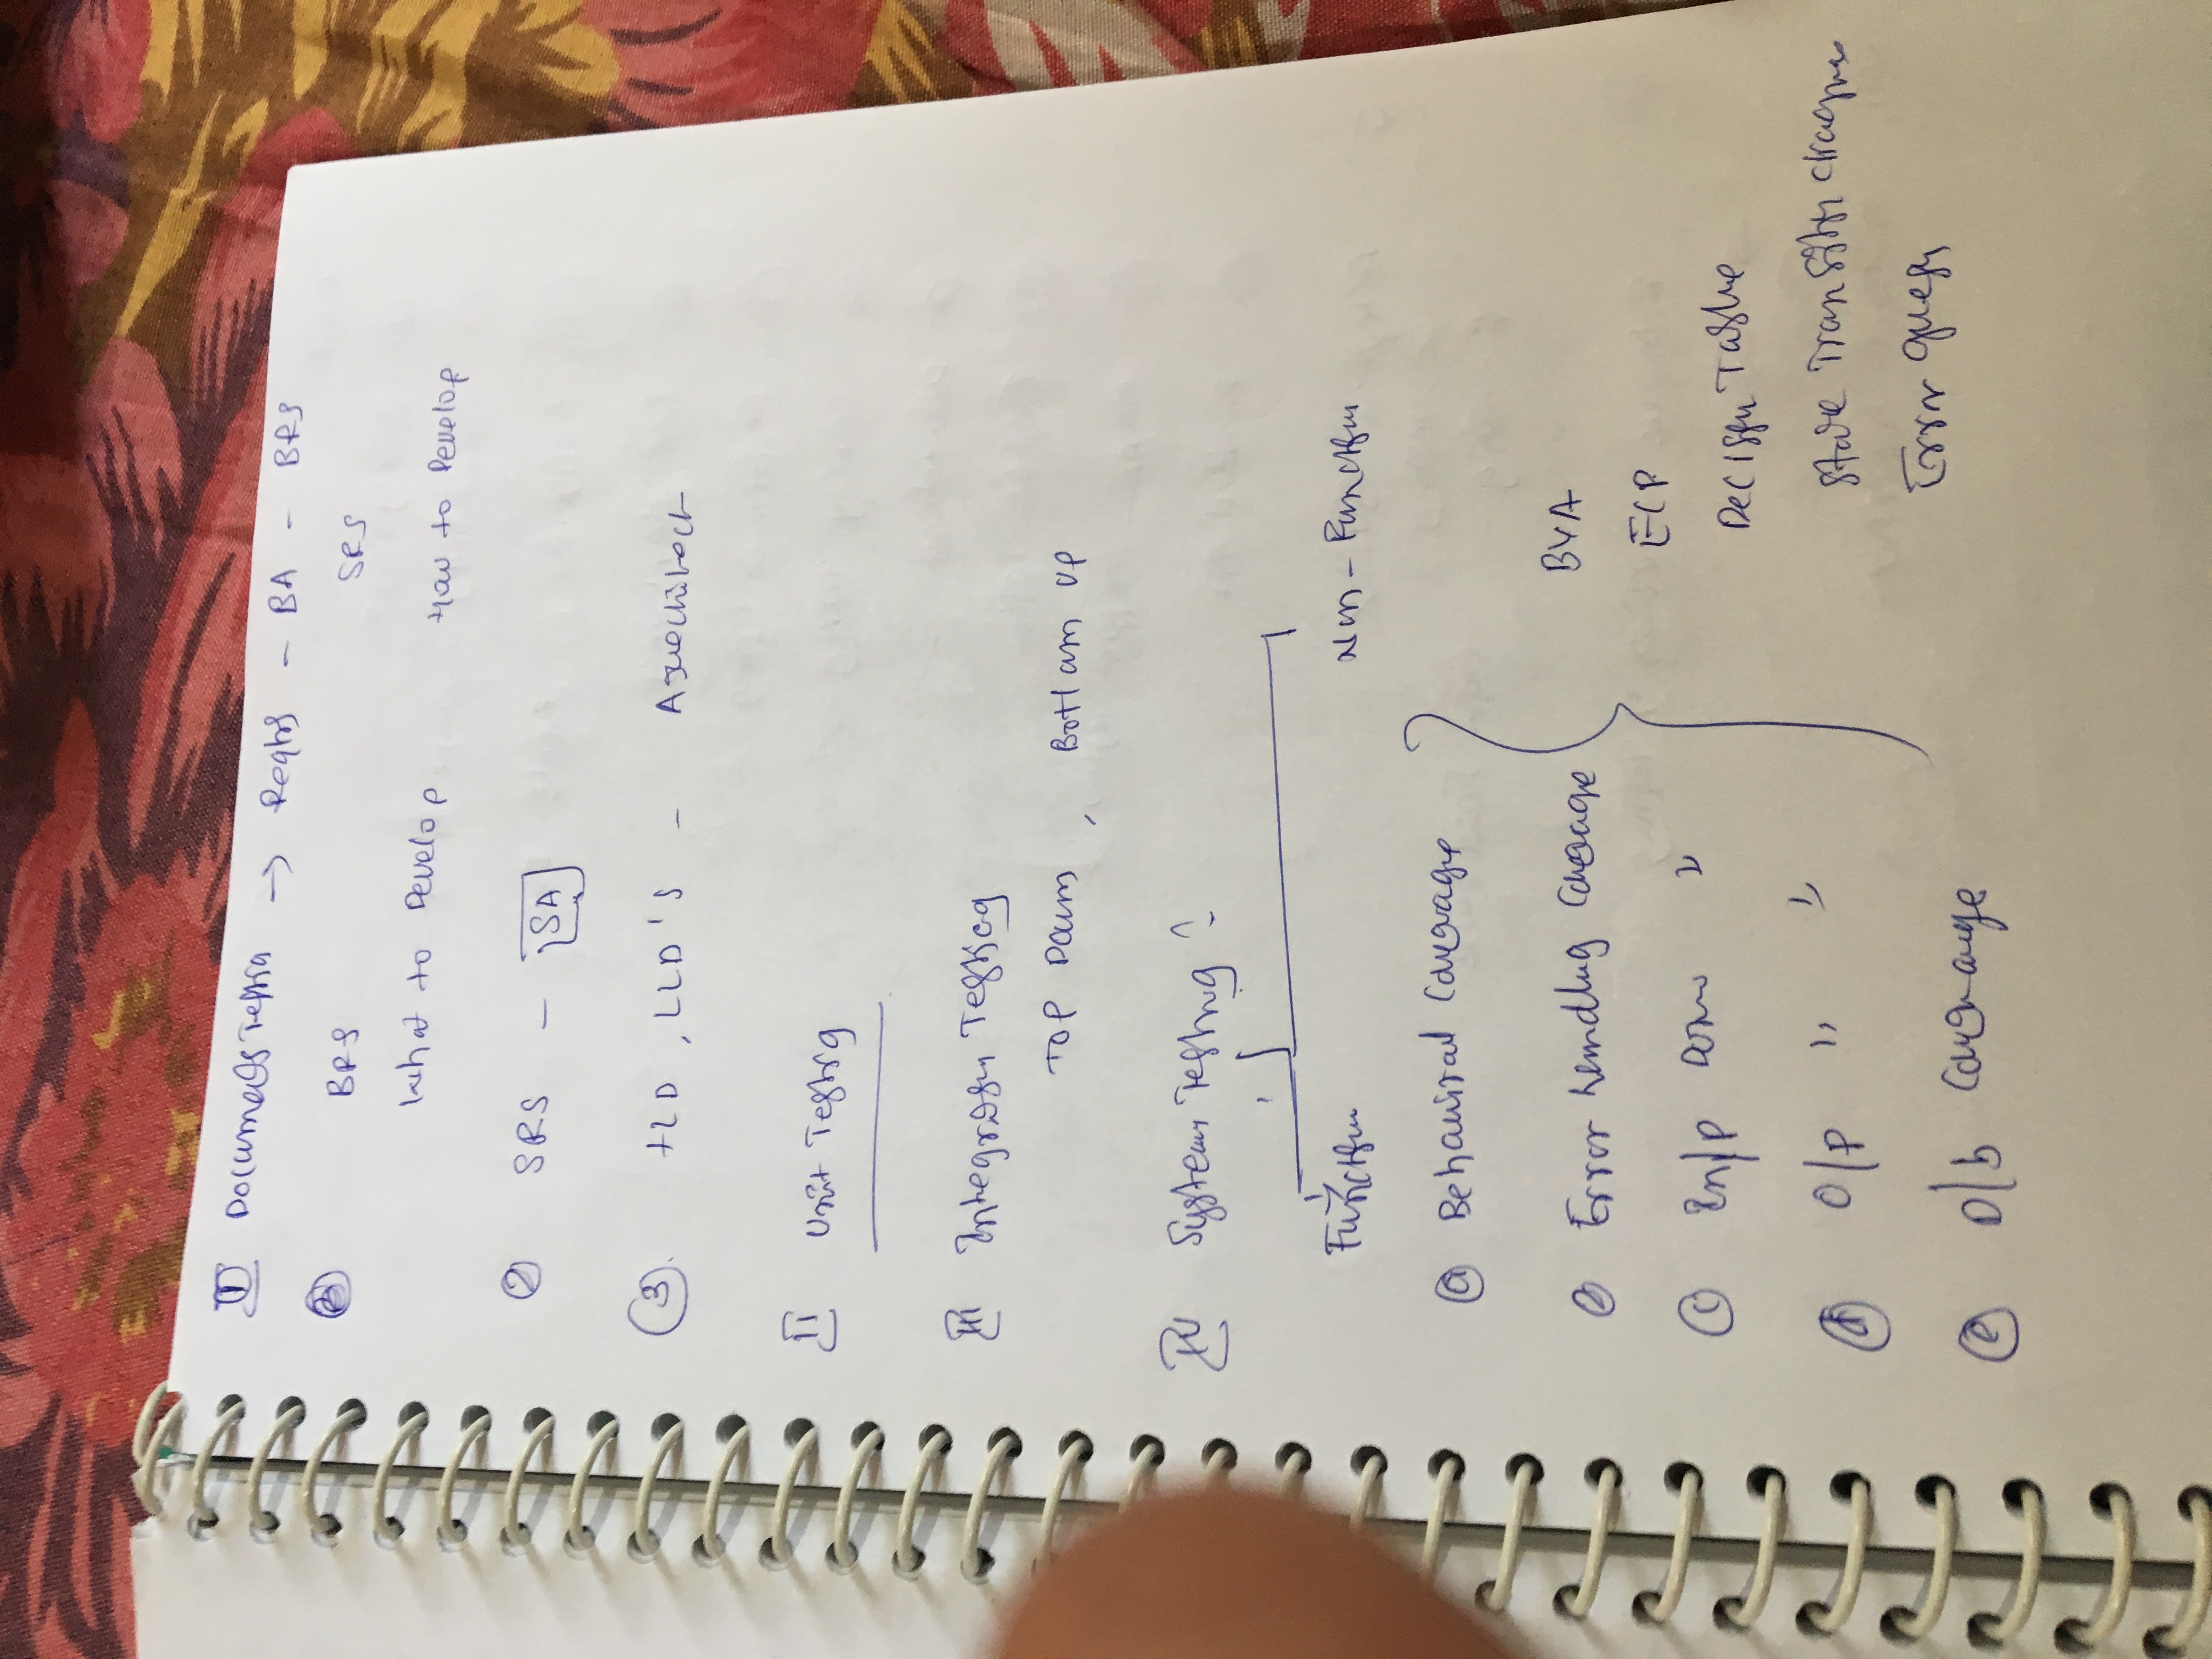 I Documents Testing → Reqts - BA - BRS
BRS SRS
What to Develop How to Develop
② SRS - SA
③. HLD, LLD's - Architect
II Unit Testing
III Integration Testing
Top Down, Bottom up
IV System Testing :
Function Non-Function
ⓐ Behavioral Coverage
Error handling Coverage
BVA
ECP
ⓒ In/p Domain "
Decision Table
ⓓ O/p " "
State Transition diagram
Error guess
ⓔ D/b Coverage